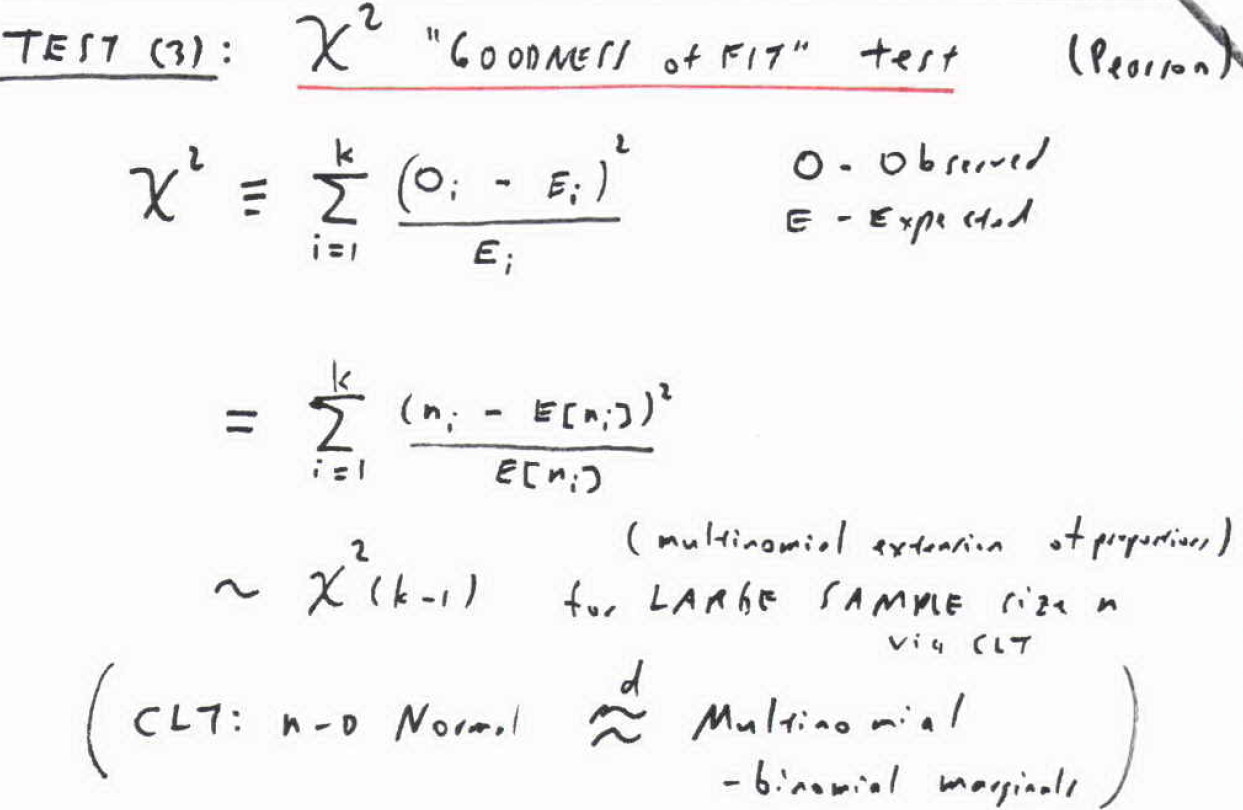 TEST (3): χ² "GOODNESS of FIT" test (Pearson)
χ² ≡ Σ_{i=1}^{k} (O_i - E_i)² / E_i O - Observed
E - Expected
= Σ_{i=1}^{k} (n_i - E[n_i])² / E[n_i]
(multinomial extension of proportions)
~ χ²(k-1) for LARGE SAMPLE size n
via CLT
(CLT: n-D Normal ≈^d Multinomial
- binomial marginals)